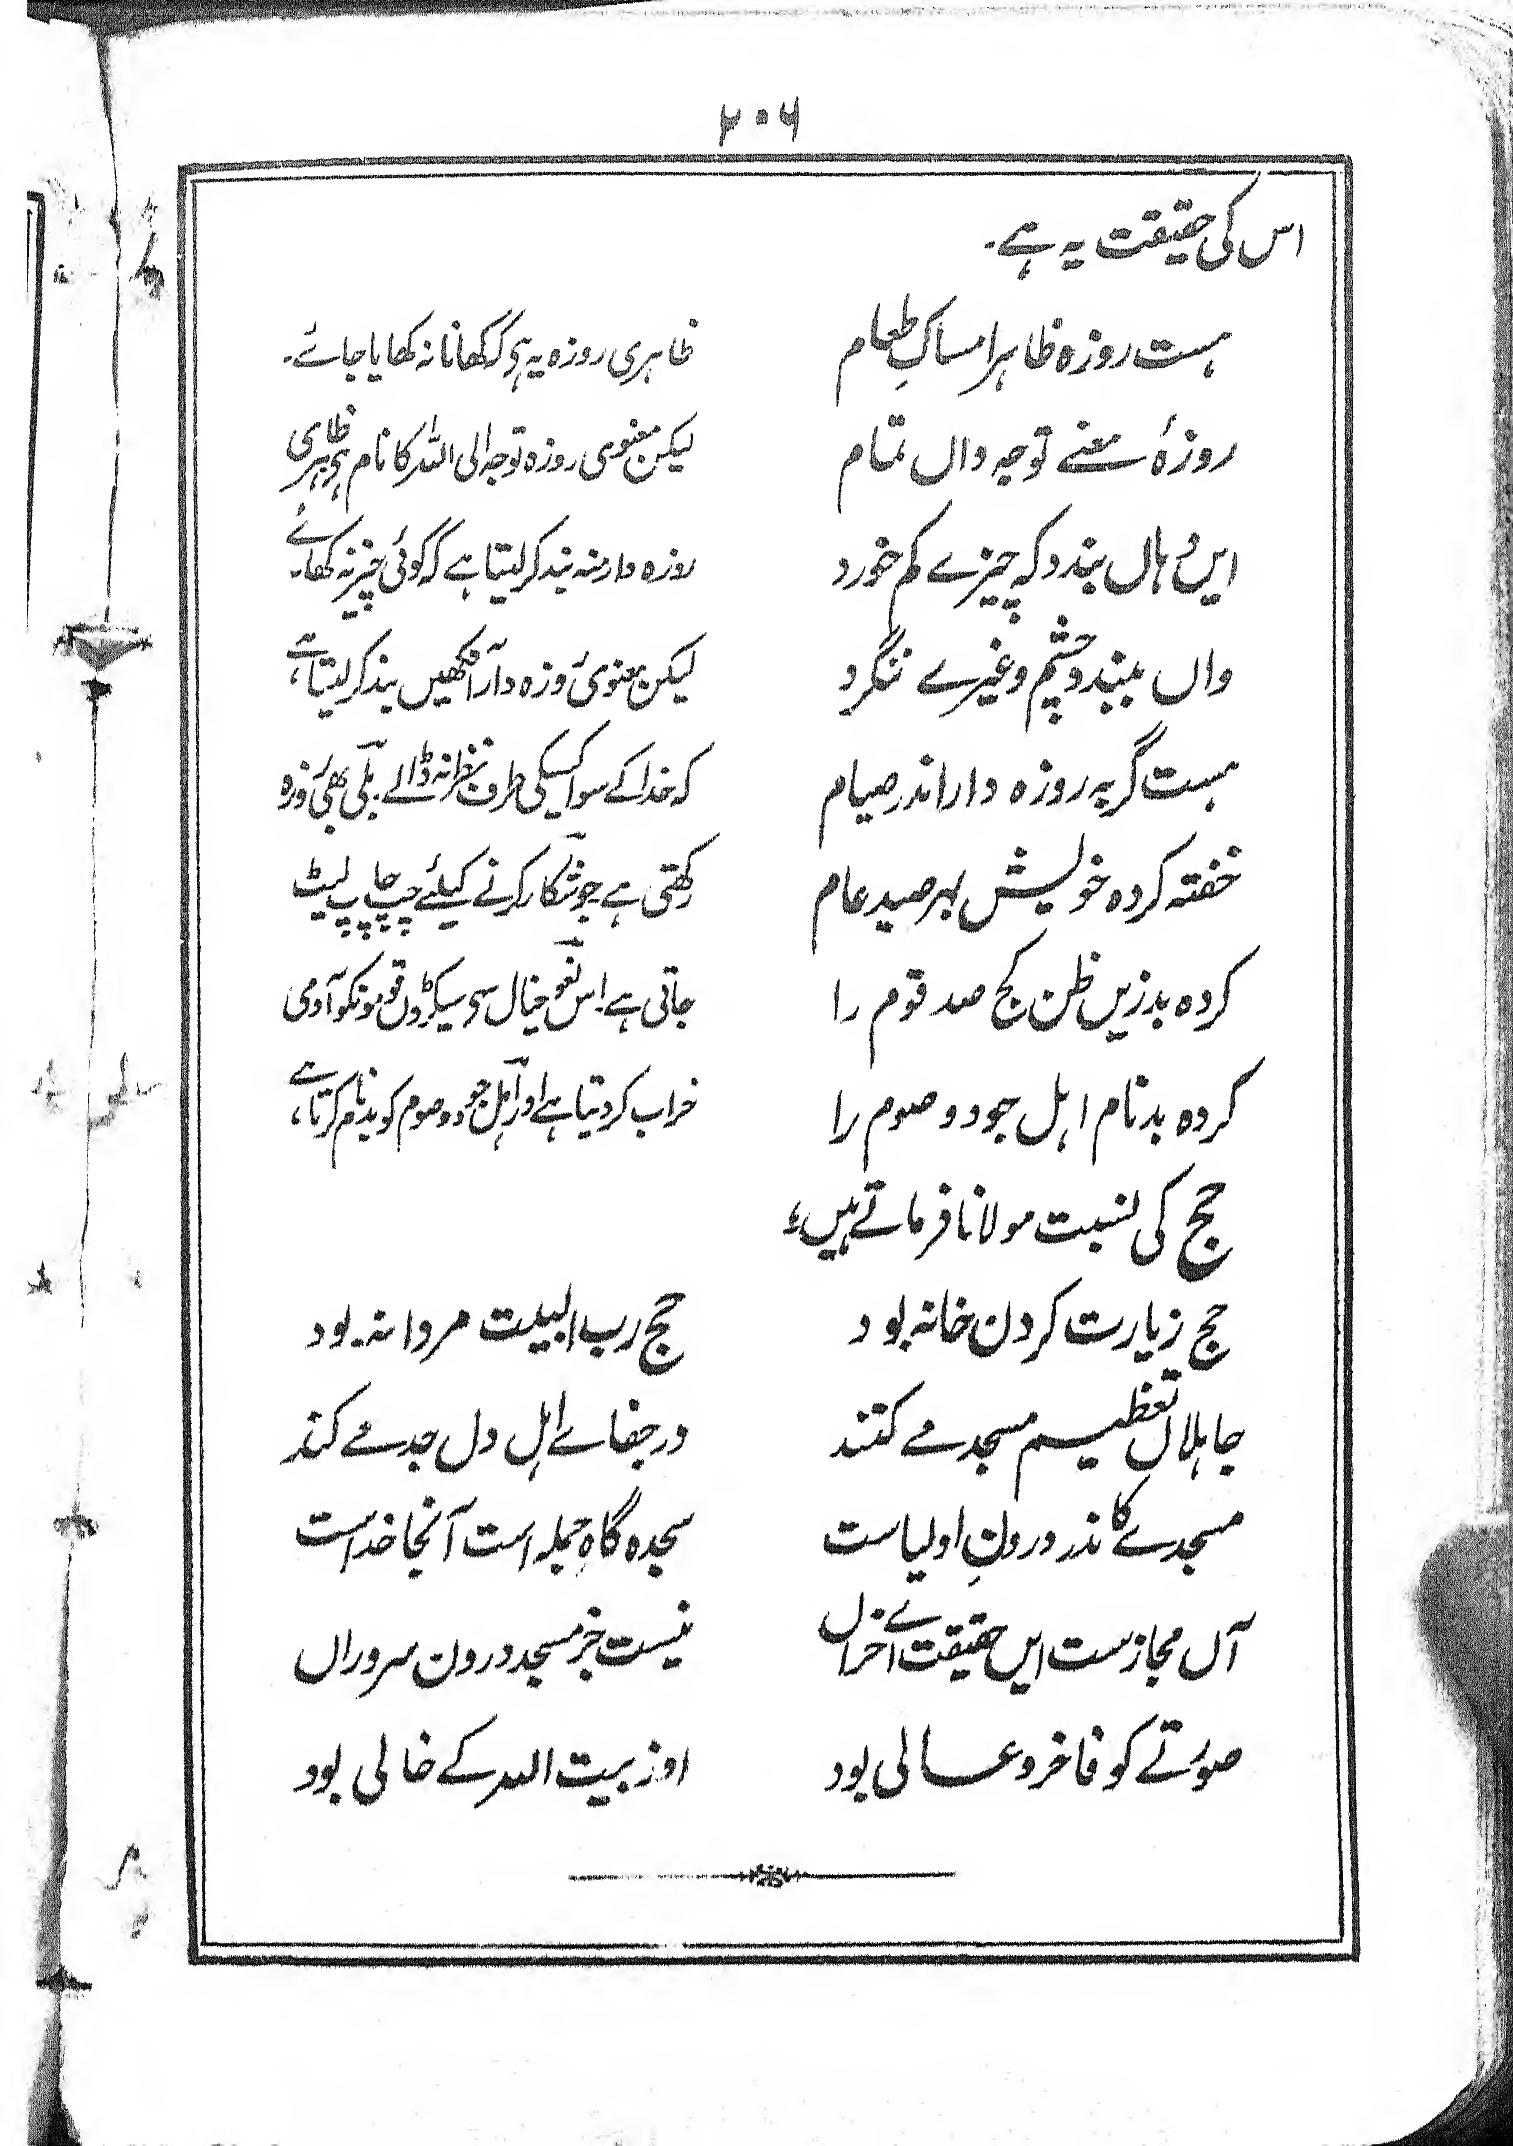 ۲۰۶
اس کی حقیقت یہ ہے۔
ہست روزہ ظاہر امساکِ طعام
ظاہری روزہ یہ ہی کہ کھانا نہ کھایا جائے۔
روزۂ معنے توجہ داں تمام
لیکن معنوی روزہ توجہ الی اللہ کا نام ہی ظاہری
ایں وہاں بندد کہ چیزے کم خورد
روزہ دار منہ بند کر لیتا ہے کہ کوئی چیز نہ کھائے۔
واں ببندد چشم و غیرے ننگرد
لیکن معنوی روزہ دار آنکھیں بند کر لیتا ہے،
ہست گربہ روزہ دار اندر صیام
کہ خدا کے سوا کسیکی طرف نظر نہ ڈالے۔ بلی بھی روزہ
خفتہ کردہ خویش بہر صید عام
رکھتی ہے جو شکار کرنے کیلئے چپ چاپ لیٹ
کردہ بد زیں ظن کج صد قوم را
جاتی ہے۔ اس لغو خیال سی سیکڑوں قومونکو آدمی
کردہ بدنام اہل جود و صوم را
خراب کر دیتا ہے اور اہل جود و صوم کو بدنام کرتا ہے،
حج کی نسبت مولانا فرماتے ہیں؛
حج زیارت کردن خانہ بود
حج رب البیت مردانہ بود
جاہلاں تعظیم مسجد مے کنند
در جفائے اہل دل جد مے کنند
مسجدے کاندر درونِ اولیاست
سجدہ گاہِ جملہ است آنجا خداست
آں مجازست ایں حقیقت اے خراں
نیست جز مسجد درون سروراں
صورتے کو فاخر و عالی بود
او ز بیت اللہ کے خالی بود